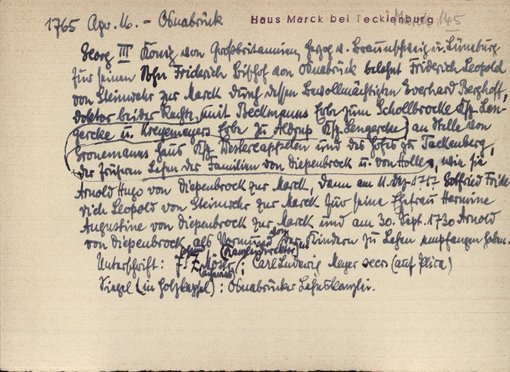 1765 Apr. 16. – Osnabrück Haus Marck bei Tecklenburg 145
Georg III König von Großbritannien, Herzog v. Braunschweig u. Lüneburg
für seinen Sohn Friderich Bischof von Osnabrück belehnt Friderich Leopold
von Steinwehr zur Marck durch dessen Bevollmächtigten Everhard Berghoff,
doktor beider Rechte, mit Beckmanns Erbe zum Schollbrocke Ksp. Len-
gercke u. Kregemeyers Erbe zu Aldrup Ksp. Lengercke an Stelle von
Cronemanns Haus Ksp. Westercappelen und des Hofes zu Tackenberg,
der früheren Lehen der Familien von Diepenbrock u. von Holle, wie sie
Arnold Hugo von Diepenbrock zur Marck, dann am 11. Dez. 1757 Gotfried Fride-
rich Leopold von Steinwehr zur Marck für seine Ehefrau Hermine
Augustine von Diepenbrock zur Marck und am 30. Sept. 1730 Arnold
von Diepenbrock als Vormund von deren Kindern zu Lehen empfangen haben.
Unterschrift: J. E. Möser; Carl Ludwig Meyer secr (auf Plica)
Siegel (in Holzkapsel): Osnabrücker Lehnskanzlei.